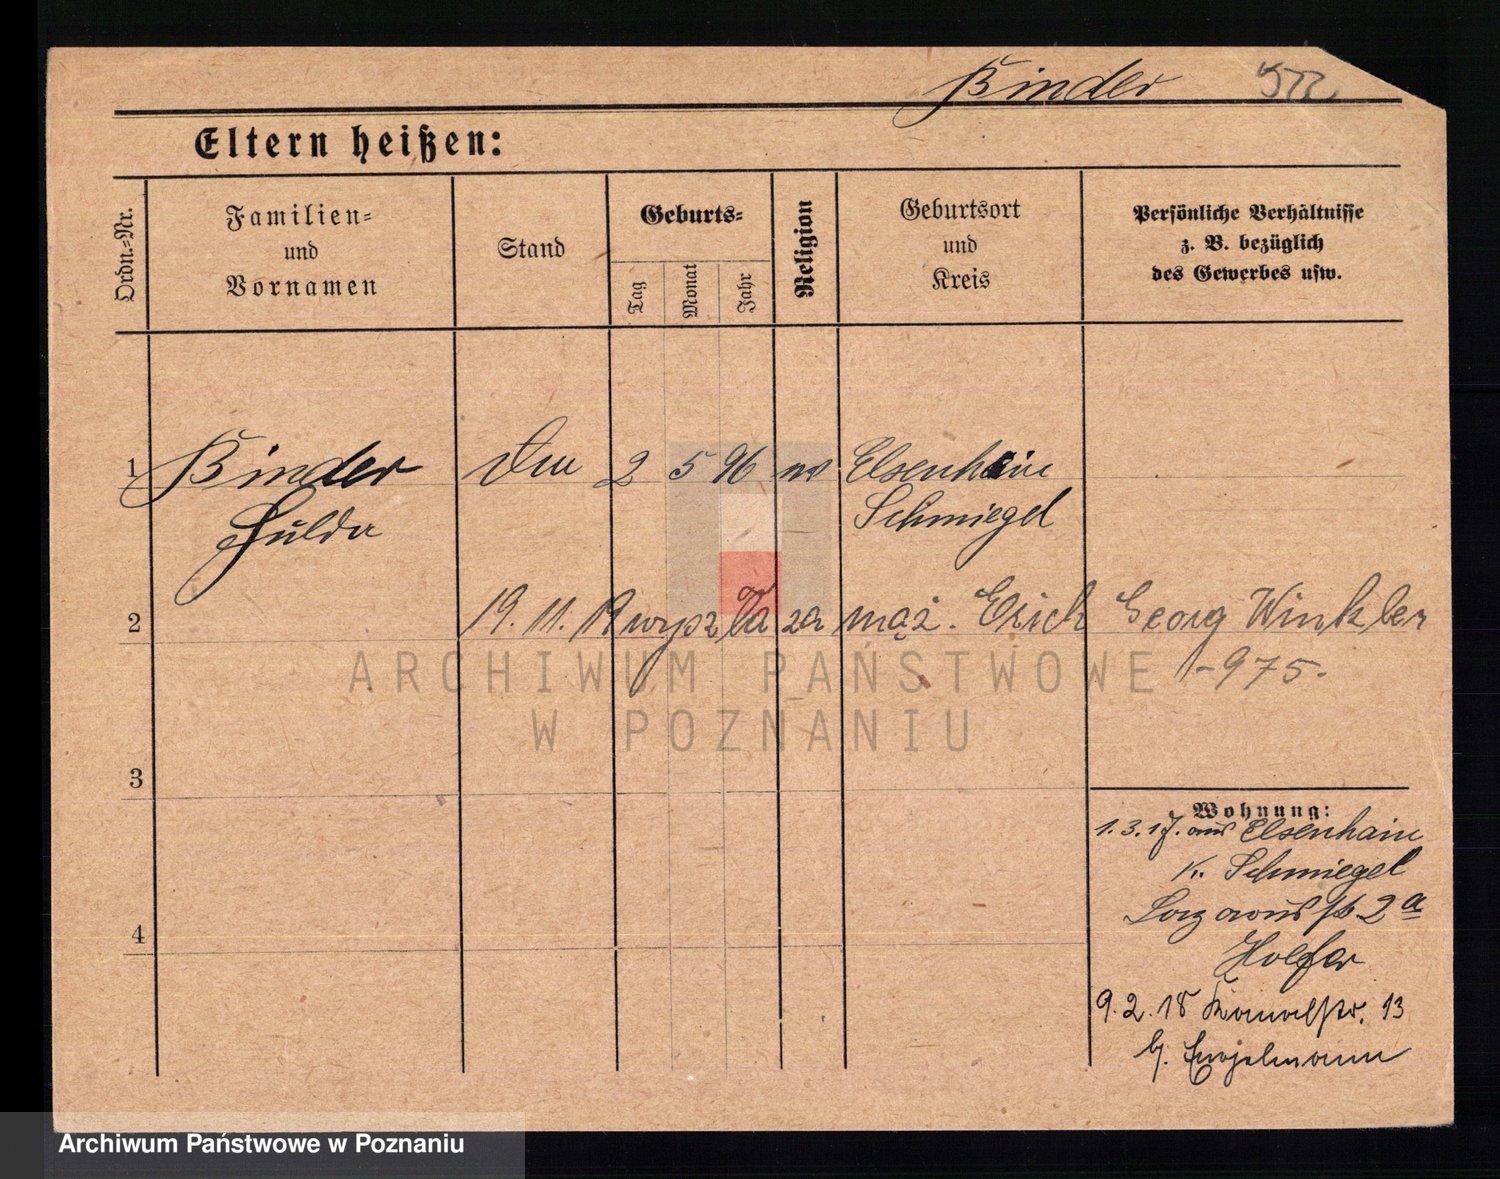 Binder 522
Eltern heißen:
Ordn.-Nr.
Familien-
und
Vornamen
Stand
Geburts-
Tag
Monat
Jahr
Religion
Geburtsort
und
Kreis
Persönliche Verhältnisse
z. B. bezüglich
des Gewerbes usw.
1 Binder 2 5 96 Elsenhain
Hulda Schmiegel
2 19. 11. 19 wyszła za mąż. Erich Georg Winkler
-975-
3
Wohnung:
1. 3. 17. aus Elsenhain
K. Schmiegel
2a
4
9. 2. 18 Kanalstr. 13
b. Engelmann
ARCHIWUM PAŃSTWOWE
W POZNANIU
Archiwum Państwowe w Poznaniu